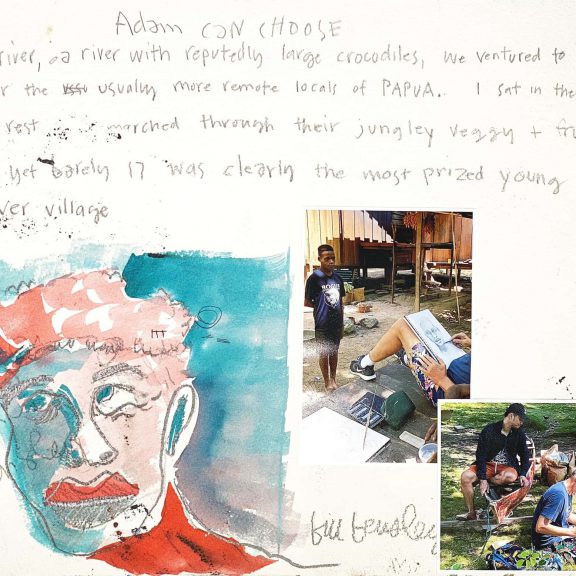 Adam CAN CHOOSE
river, a river with reputedly large crocodiles, we ventured to
r the usually more remote locals of PAPUA. I sat in the
rest marched through their jungley veggy + fr
yet barely 17 was clearly the most prized young
ver village
bill bensley